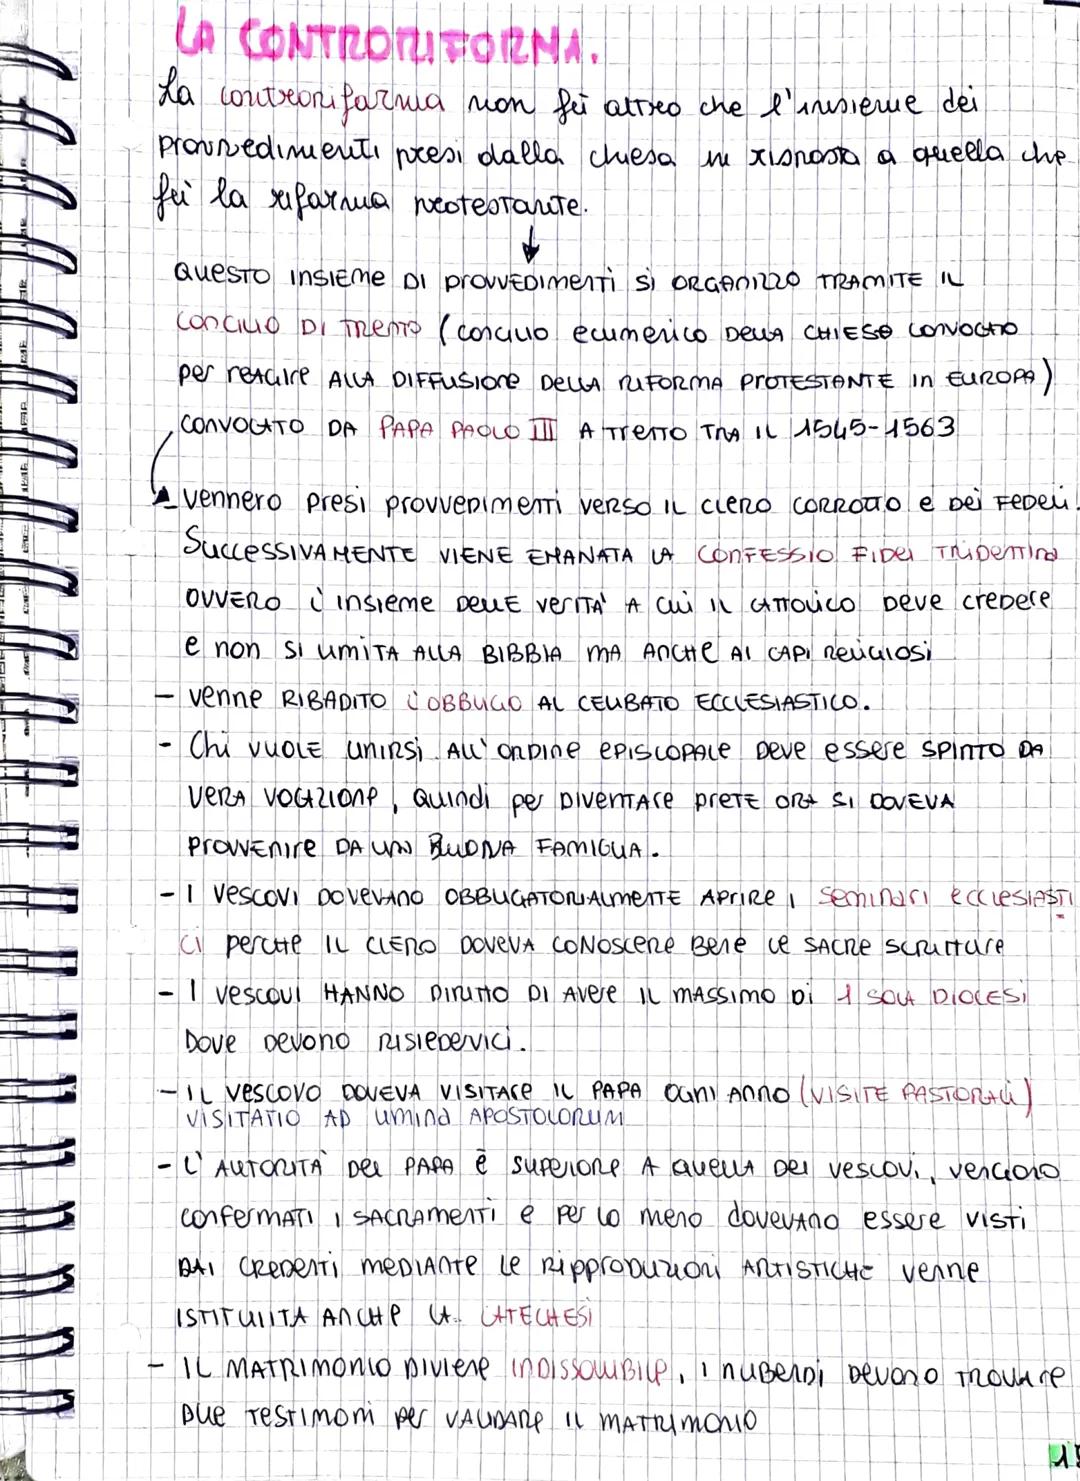 LA CONTRORIFORMA.
La controriforma non fù altro che l'insieme dei
provvedimenti presi dalla chiesa in risposta a quella che
fù la riforma protestante.
QUESTO INSIEME DI PROVVEDIMENTI SI ORGANIZZO TRAMITE IL
CONCILIO DI TRENTO (CONCILIO ECUMENICO DELLA CHIESA CONVOCATO
PER REAGIRE ALLA DIFFUSIONE DELLA RIFORMA PROTESTANTE IN EUROPA)
CONVOCATO DA PAPA PAOLO III A TRENTO TRA IL 1545-1563
VENNERO PRESI PROVVEDIMENTI VERSO IL CLERO CORROTTO E DEI FEDELI.
SUCCESSIVAMENTE VIENE EMANATA LA CONFESSIO FIDEI TRIDENTINA
OVVERO L'INSIEME DELLE VERITA' A CUI IL CATTOLICO DEVE CREDERE
E NON SI LIMITA ALLA BIBBIA MA ANCHE AI CAPI RELIGIOSI
- VENNE RIBADITO L'OBBLIGO AL CELIBATO ECCLESIASTICO.
- CHI VUOLE UNIRSI ALL'ORDINE EPISCOPALE DEVE ESSERE SPINTO DA
VERA VOCAZIONE, QUINDI PER DIVENTARE PRETE ORA SI DOVEVA
PROVVENIRE DA UN BUONA FAMIGLIA.
- I VESCOVI DOVEVANO OBBLIGATORIALMENTE APRIRE I SEMINARI ECCLESIASTI
CI PERCHE IL CLERO DOVEVA CONOSCERE BENE LE SACRE SCRITTURE
- I VESCOVI HANNO DIRITTO DI AVERE IL MASSIMO DI 1 SOLA DIOCESI
DOVE DEVONO RISIEDERVICI.
- IL VESCOVO DOVEVA VISITARE IL PAPA OGNI ANNO (VISITE PASTORALI)
VISITATIO AD LIMINA APOSTOLORUM
- L'AUTORITA' DEL PAPA È SUPERIORE A QUELLA DEI VESCOVI, VENGONO
CONFERMATI I SACRAMENTI E PER LO MENO DOVEVANO ESSERE VISTI
DAI CREDENTI MEDIANTE LE RIPPRODUZIONI ARTISTICHE VENNE
ISTITUIITA ANCHE LA CATECHESI
- IL MATRIMONIO DIVIENE INDISSOLUBILE, I NUBENDI DEVONO TROVARE
DUE TESTIMONI PER VALIDARE IL MATRIMONIO